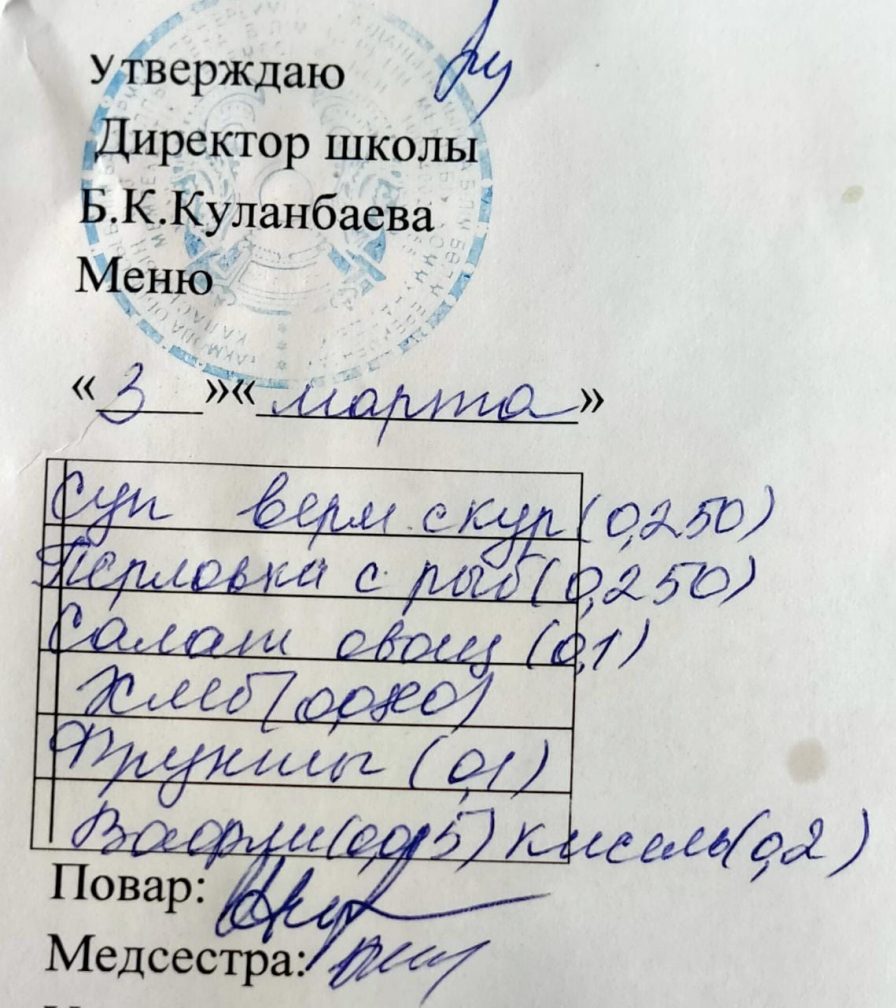 Утверждаю
Директор школы
Б.К.Куланбаева
Меню
«3»«марта»
Суп верм. с кур (0,250)
Перловка с рыб (0,250)
Салат овощ (0,1)
Хлеб (0,080)
Фрукты (0,1)
Вафли (0,015) кисель (0,2)
Повар:
Медсестра: